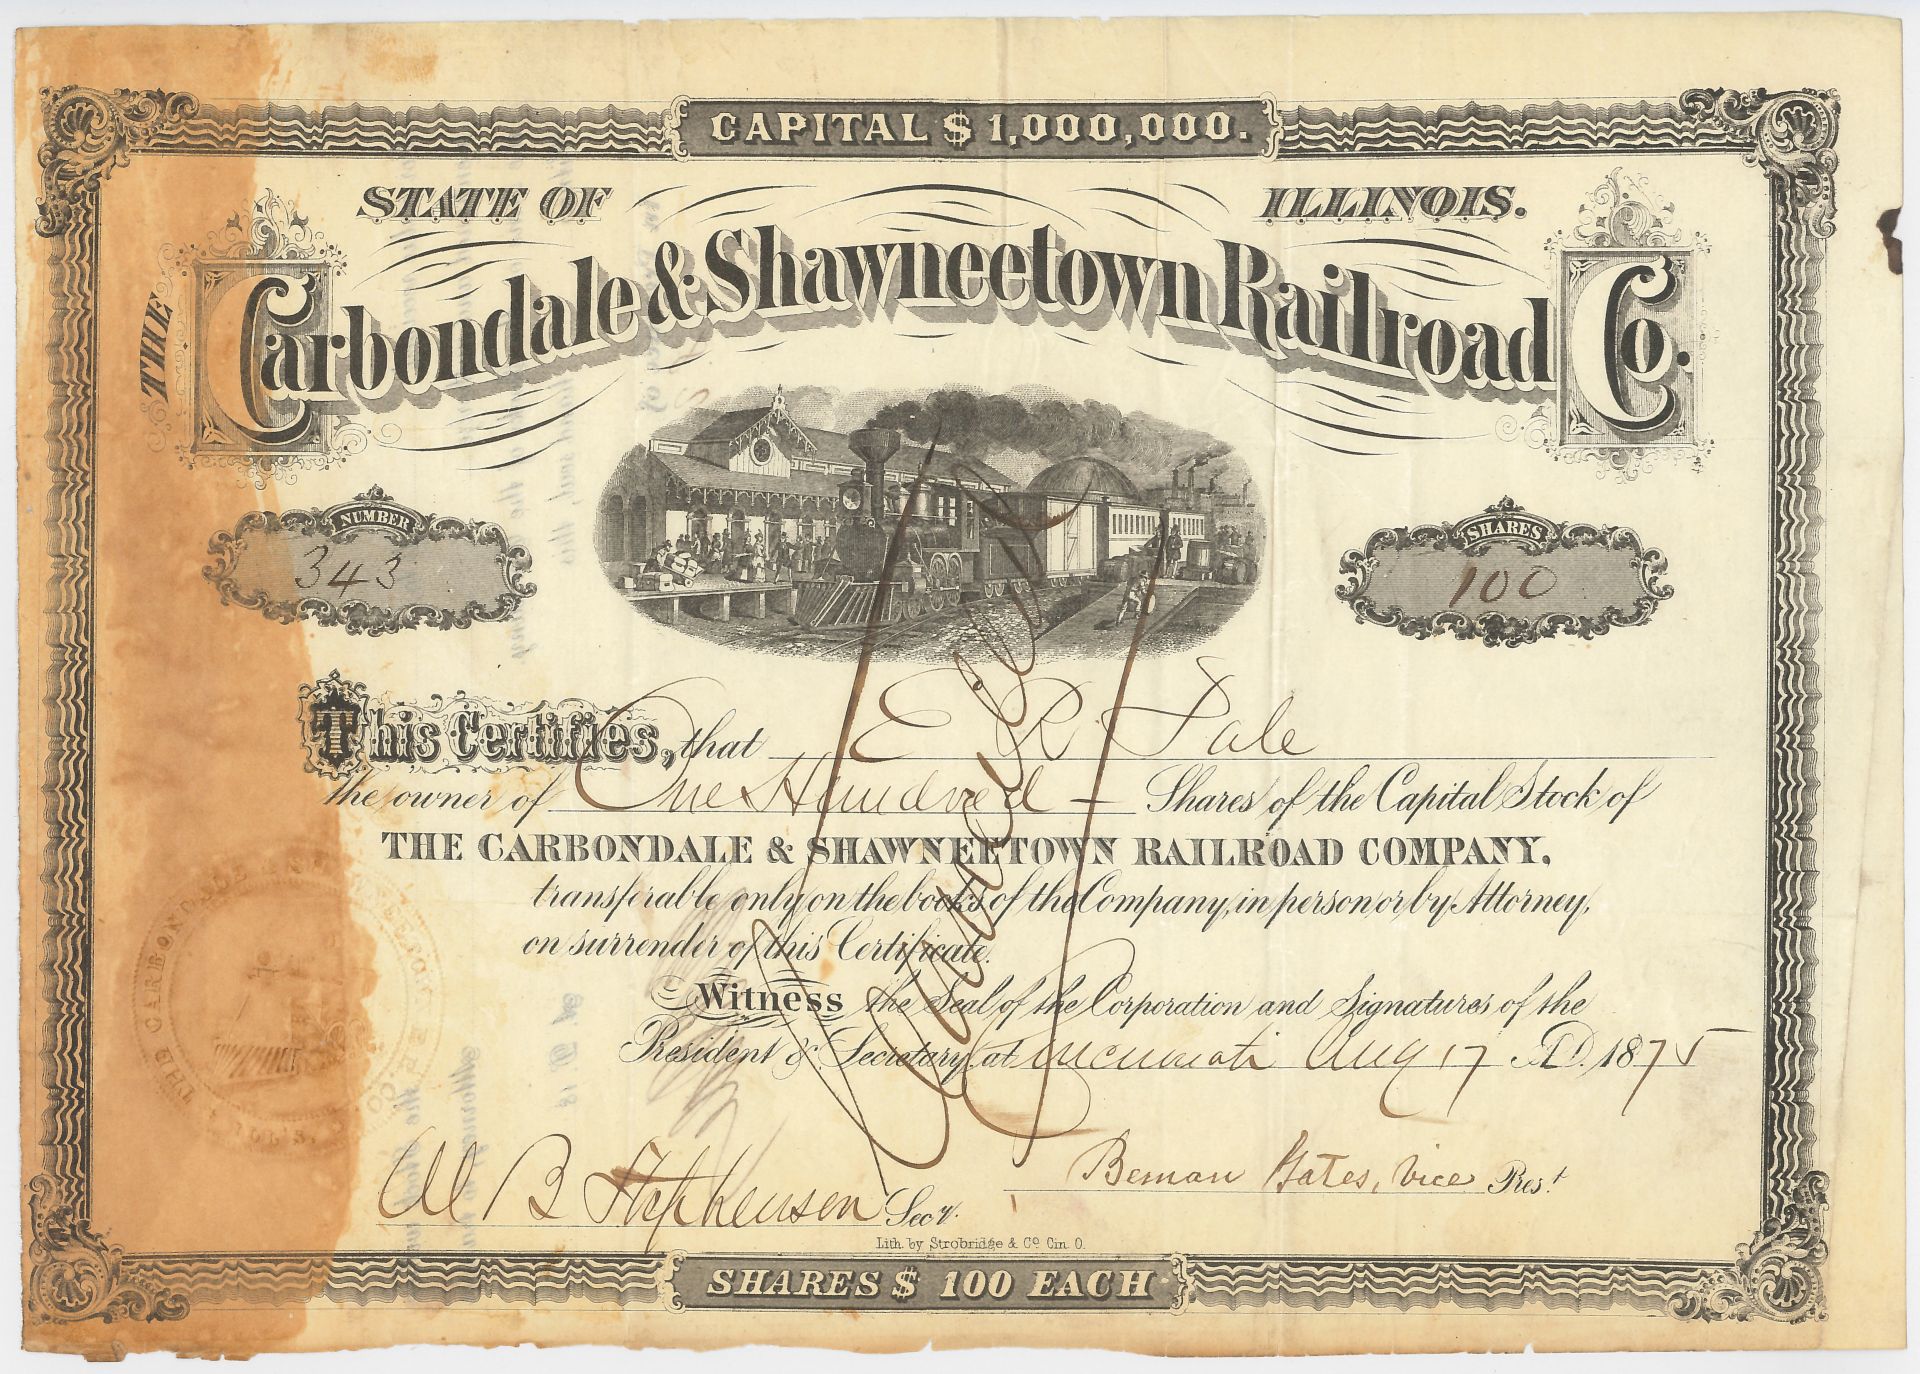 CAPITAL $ 1,000,000.
STATE OF ILLINOIS.
THE Carbondale & Shawneetown Railroad Co.
NUMBER
343
SHARES
100
This Certifies, that E R Sale
the owner of One Hundred — Shares of the Capital Stock of
THE CARBONDALE & SHAWNEETOWN RAILROAD COMPANY,
transferable only on the books of the Company, in person or by Attorney,
on surrender of this Certificate.
Witness the Seal of the Corporation and Signatures of the
President & Secretary, at Cincinnati Aug 17 A.D. 1875
Cancelled
B Stephenson Secy.
Beman Gates, Vice Prest
Lith. by Strobridge & Co. Cin. O.
SHARES $ 100 EACH
THE CARBONDALE